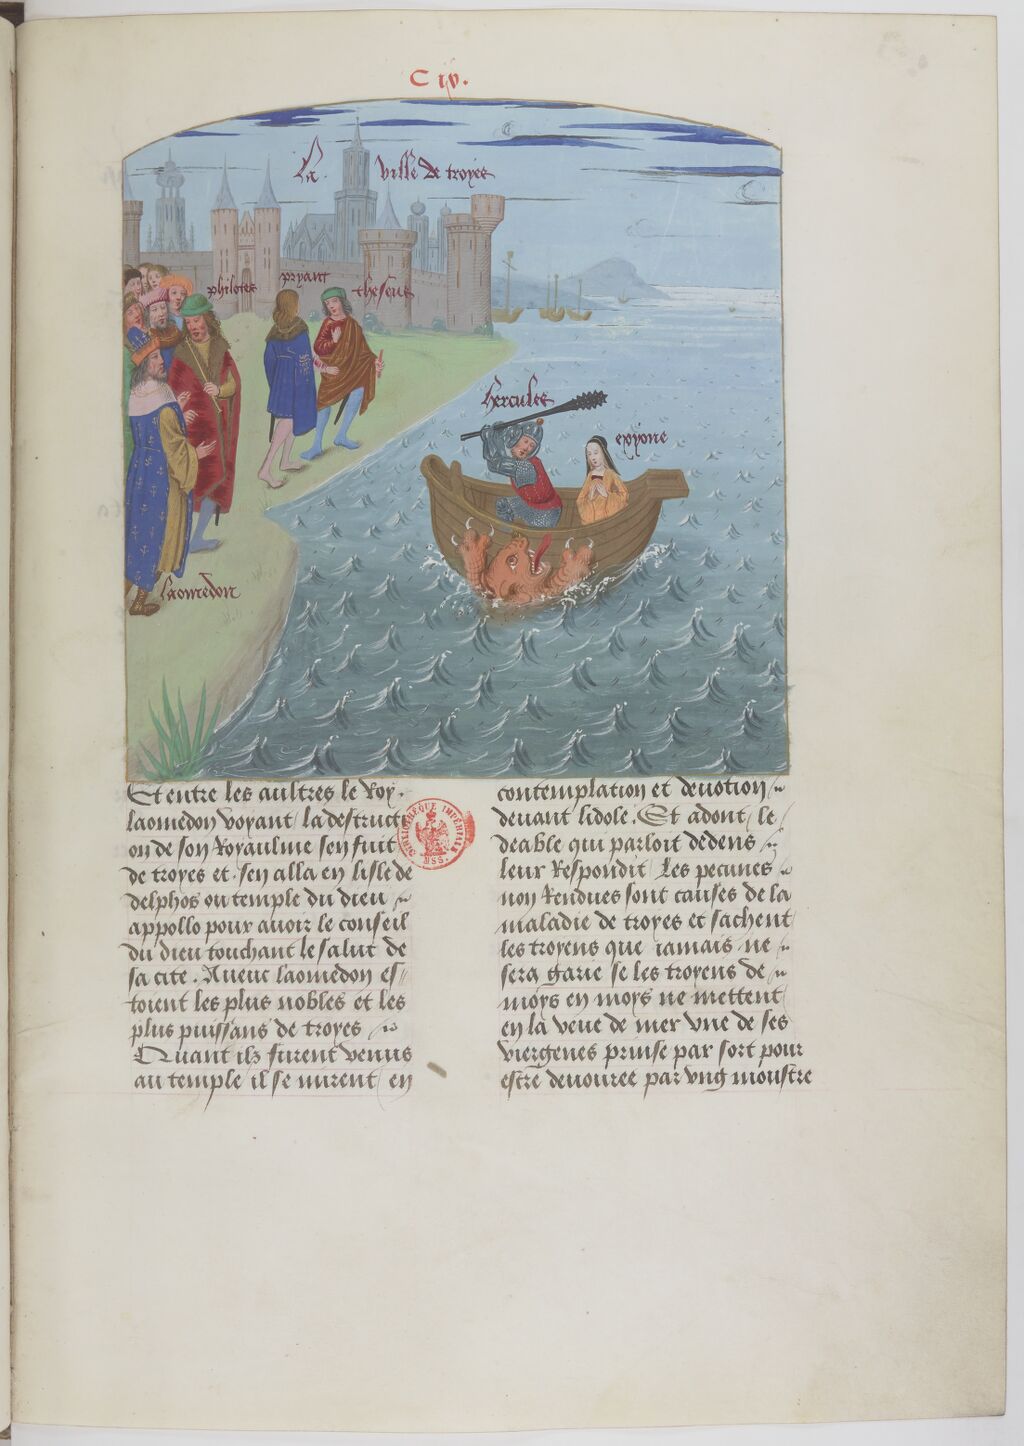 C iv.
La ville de troyes
philotes
pryant
theseus
hercules
exione
laomedon
Et entre les aultres le Roy
laomedon voyant la destructi
on de son Royaulme sen fuit
de troyes et sen alla en lisle de
delphos ou temple du dieu
appollo pour auoir le conseil
du dieu touchant le salut de
sa cite. Auecc laomedon es
toient les plus nobles et les
plus puissans de troyes
Quant ilz furent venus
au temple il se mirent en
contemplation et deuotion
deuant lidole. Et adont le
deable qui parloit dedens
leur Respondit Les pecunes
non Rendues sont causes de la
maladie de troyes et sachent
les troyens que iamais ne
sera garie se les troyens de
moys en moys ne mettent
en la veue de mer vne de ses
viergenes prinse par sort pour
estre deuouree par vng monstre
BIBLIOTHÈQUE IMPÉRIALE
MSS.